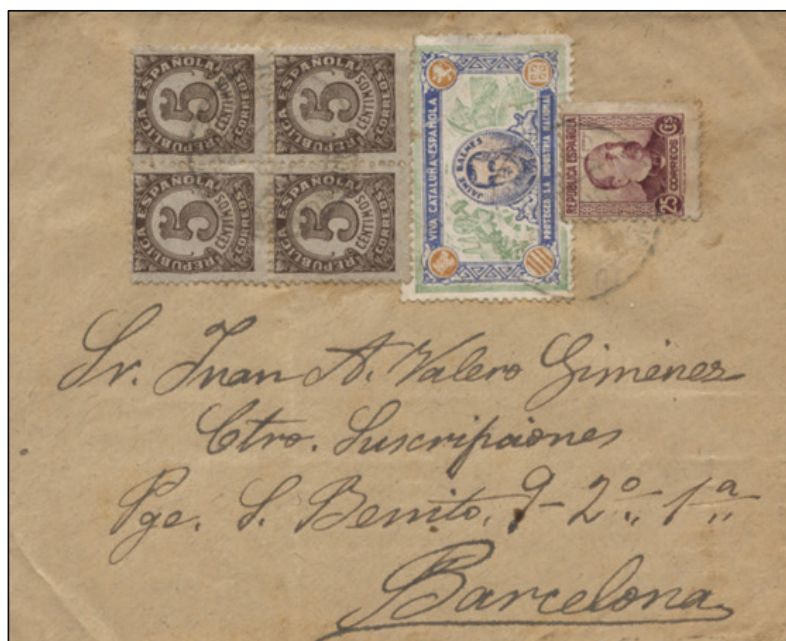 REPÚBLICA ESPAÑOLA
5
CENTIMOS
CORREOS
REPÚBLICA ESPAÑOLA
5
CENTIMOS
CORREOS
REPÚBLICA ESPAÑOLA
5
CENTIMOS
CORREOS
REPÚBLICA ESPAÑOLA
5
CENTIMOS
CORREOS
VIVA CATALUÑA ESPAÑOLA
JAIME BALMES
PROTEGED LA INDUSTRIA NACIONAL
REPUBLICA ESPAÑOLA
25 CORREOS Cts
Sr. Juan A. Valero Giménez
Ctro. Suscripciones
Pge. S. Benito, 9-2º, 1ª
Barcelona